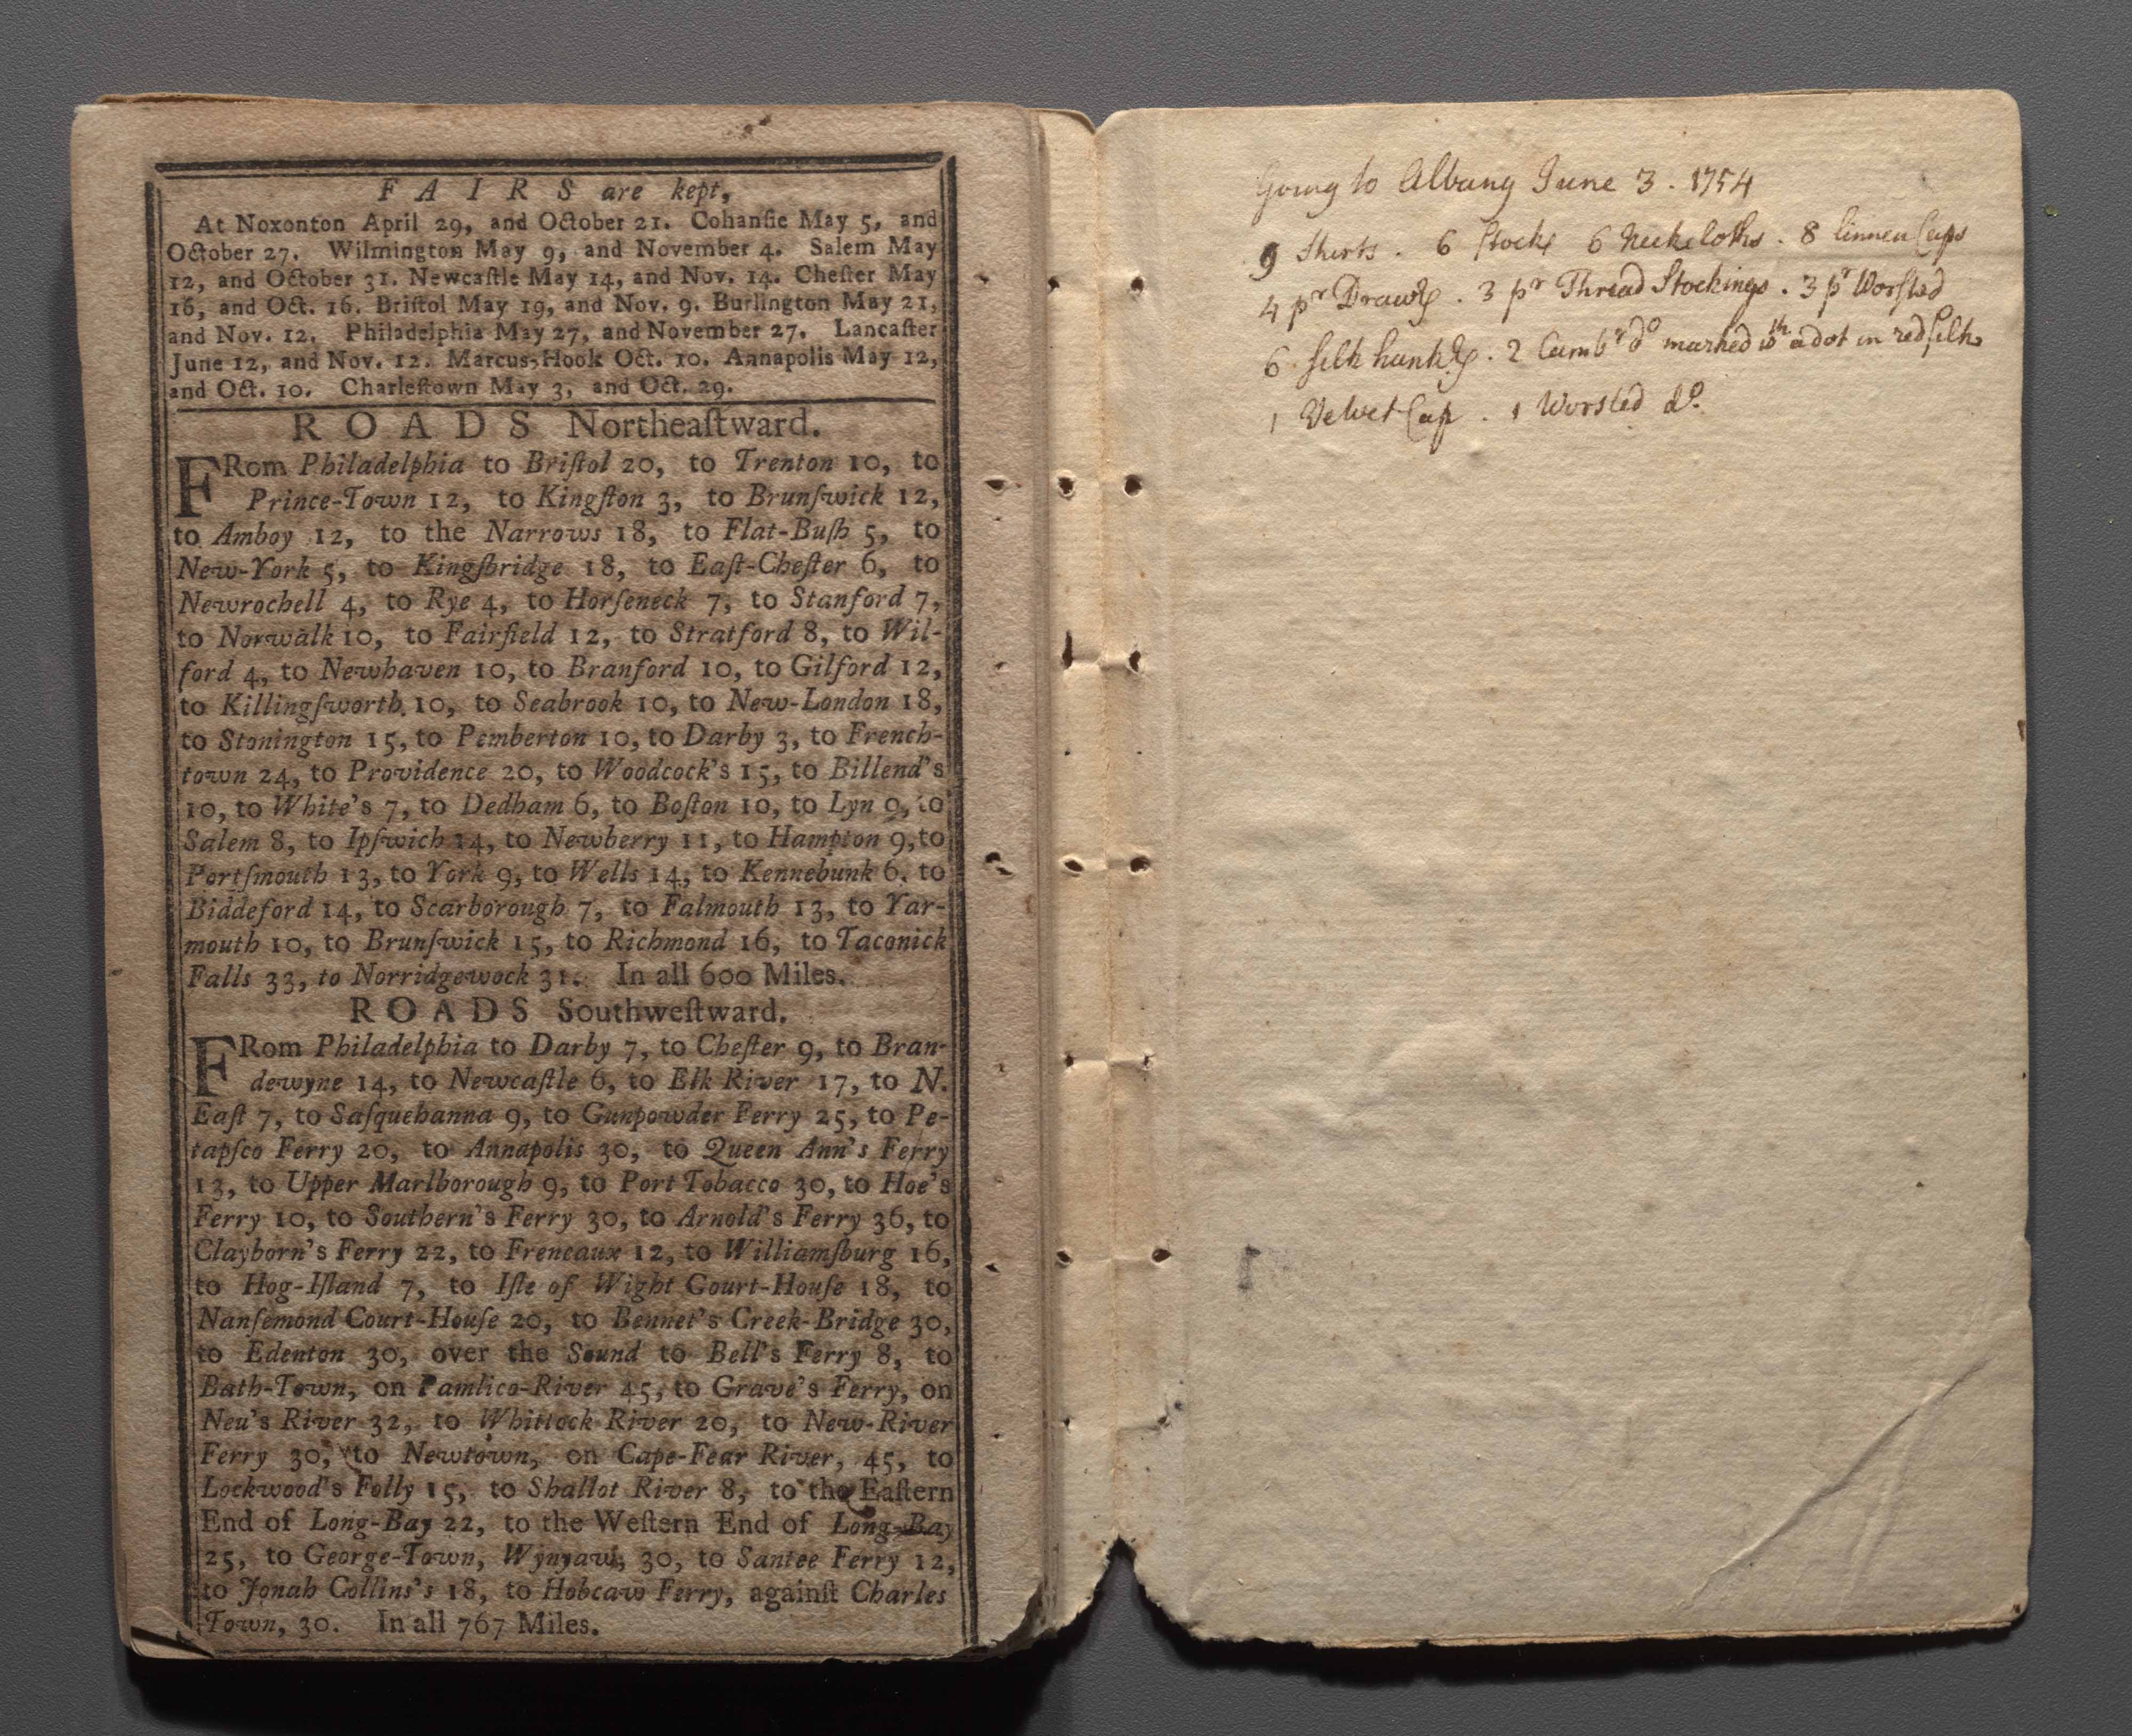 FAIRS are kept,
At Noxonton April 29, and October 21. Cohanſie May 5, and
October 27. Wilmington May 9, and November 4. Salem May
12, and October 31. Newcaſtle May 14, and Nov. 14. Cheſter May
16, and Oct. 16. Briſtol May 19, and Nov. 9. Burlington May 21,
and Nov. 12. Philadelphia May 27, and November 27. Lancaſter
June 12, and Nov. 12. Marcus-Hook Oct. 10. Annapolis May 12,
and Oct. 10. Charleſtown May 3, and Oct. 29.
ROADS Northeaſtward.
FRom Philadelphia to Briſtol 20, to Trenton 10, to
Prince-Town 12, to Kingſton 3, to Brunſwick 12,
to Amboy 12, to the Narrows 18, to Flat-Buſh 5, to
New-York 5, to Kingſbridge 18, to Eaſt-Cheſter 6, to
Newrochell 4, to Rye 4, to Horſeneck 7, to Stanford 7,
to Norwalk 10, to Fairfield 12, to Stratford 8, to Wil-
ford 4, to Newhaven 10, to Branford 10, to Gilford 12,
to Killingſworth 10, to Seabrook 10, to New-London 18,
to Stonington 15, to Pemberton 10, to Darby 3, to French-
town 24, to Providence 20, to Woodcock's 15, to Billend's
10, to White's 7, to Dedham 6, to Boſton 10, to Lyn 9, to
Salem 8, to Ipſwich 14, to Newberry 11, to Hampton 9, to
Portſmouth 13, to York 9, to Wells 14, to Kennebunk 6, to
Biddeford 14, to Scarborough 7, to Falmouth 13, to Yar-
mouth 10, to Brunſwick 15, to Richmond 16, to Taconick
Falls 33, to Norridgewock 31. In all 600 Miles.
ROADS Southweſtward.
FRom Philadelphia to Darby 7, to Cheſter 9, to Bran-
dewyne 14, to Newcaſtle 6, to Elk River 17, to N.
Eaſt 7, to Saſquehanna 9, to Gunpowder Ferry 25, to Pe-
tapſco Ferry 20, to Annapolis 30, to Queen Ann's Ferry
13, to Upper Marlborough 9, to Port Tobacco 30, to Hoe's
Ferry 10, to Southern's Ferry 30, to Arnold's Ferry 36, to
Clayborn's Ferry 22, to Freneaux 12, to Williamſburg 16,
to Hog-Iſland 7, to Iſle of Wight Court-Houſe 18, to
Nanſemond Court-Houſe 20, to Bennet's Creek-Bridge 30,
to Edenton 30, over the Sound to Bell's Ferry 8, to
Bath-Town, on Pamlico-River 45, to Grave's Ferry, on
Neu's River 32, to Whitlock River 20, to New-River
Ferry 30, to Newtown, on Cape-Fear River, 45, to
Lockwood's Folly 15, to Shallot River 8, to the Eaſtern
End of Long-Bay 22, to the Weſtern End of Long-Bay
25, to George-Town, 30, to Santee Ferry 12,
to Jonah Collins's 18, to Hobcaw Ferry, againſt Charles
Town, 30. In all 767 Miles.
Going to Albany June 3. 1754
9 Shirts. 6 Stocks 6 Neckcloths. 8 linnen Caps
4 pr Drawrs. 3 pr Thread Stockings. 3 pr Worsted
6 silk hankfs. 2 Cambr do marked wth a dot in red silk
1 Velvet Cap. 1 Worsted do.